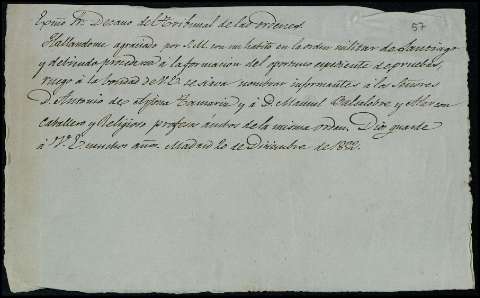 Exmo Sr. Decano del Tribunal de las ordenes.
57
Hallandome agraciado por S.M. con un habito en la orden militar de Santiago
y debiendo procederse a la formacion del oportuno espediente de pruebas,
ruego á la bondad de V.E. se sirva nombrar informantes a los Señores
D. Antonio de y á D. Manuel y
caballero y Religioso profesos ambos de la misma orden. Dios guarde
á V.E. muchos años. Madrid 20 de Diciembre de